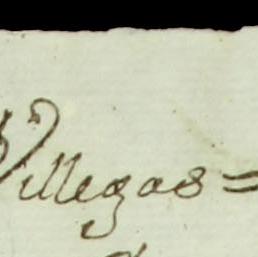 Villegas =